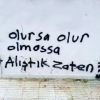 olursa olur
olmassa
Alıştık zaten